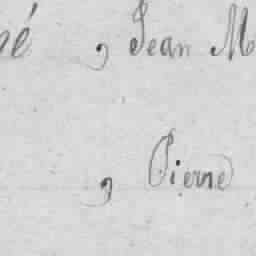 é , Jean M
, Pierre